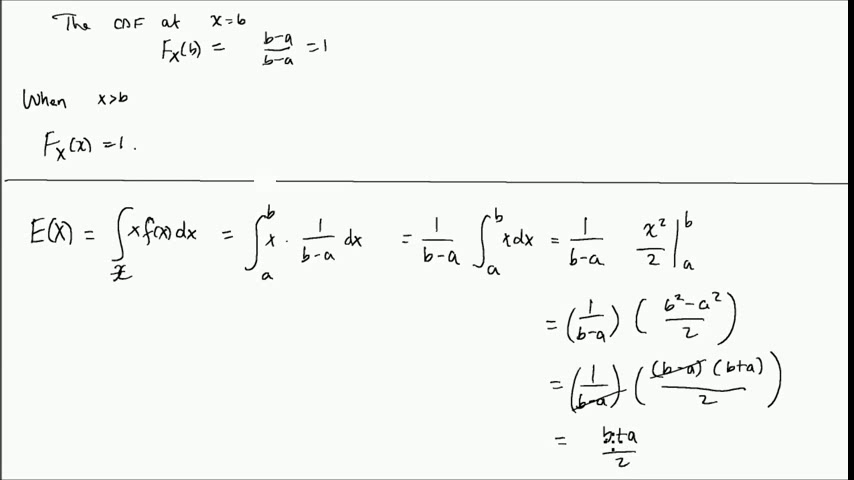 The CDF at x=b
F_X(b) = \frac{b-a}{b-a} = 1
When x>b
F_X(x) = 1.
E(X) = \int_{\mathcal{X}} x f(x) dx = \int_a^b x \cdot \frac{1}{b-a} dx = \frac{1}{b-a} \int_a^b x dx = \frac{1}{b-a} \frac{x^2}{2} |_a^b
= (\frac{1}{b-a}) (\frac{b^2-a^2}{2})
= (\frac{1}{b-a}) (\frac{(b-a)(b+a)}{2})
= \frac{b+a}{2}